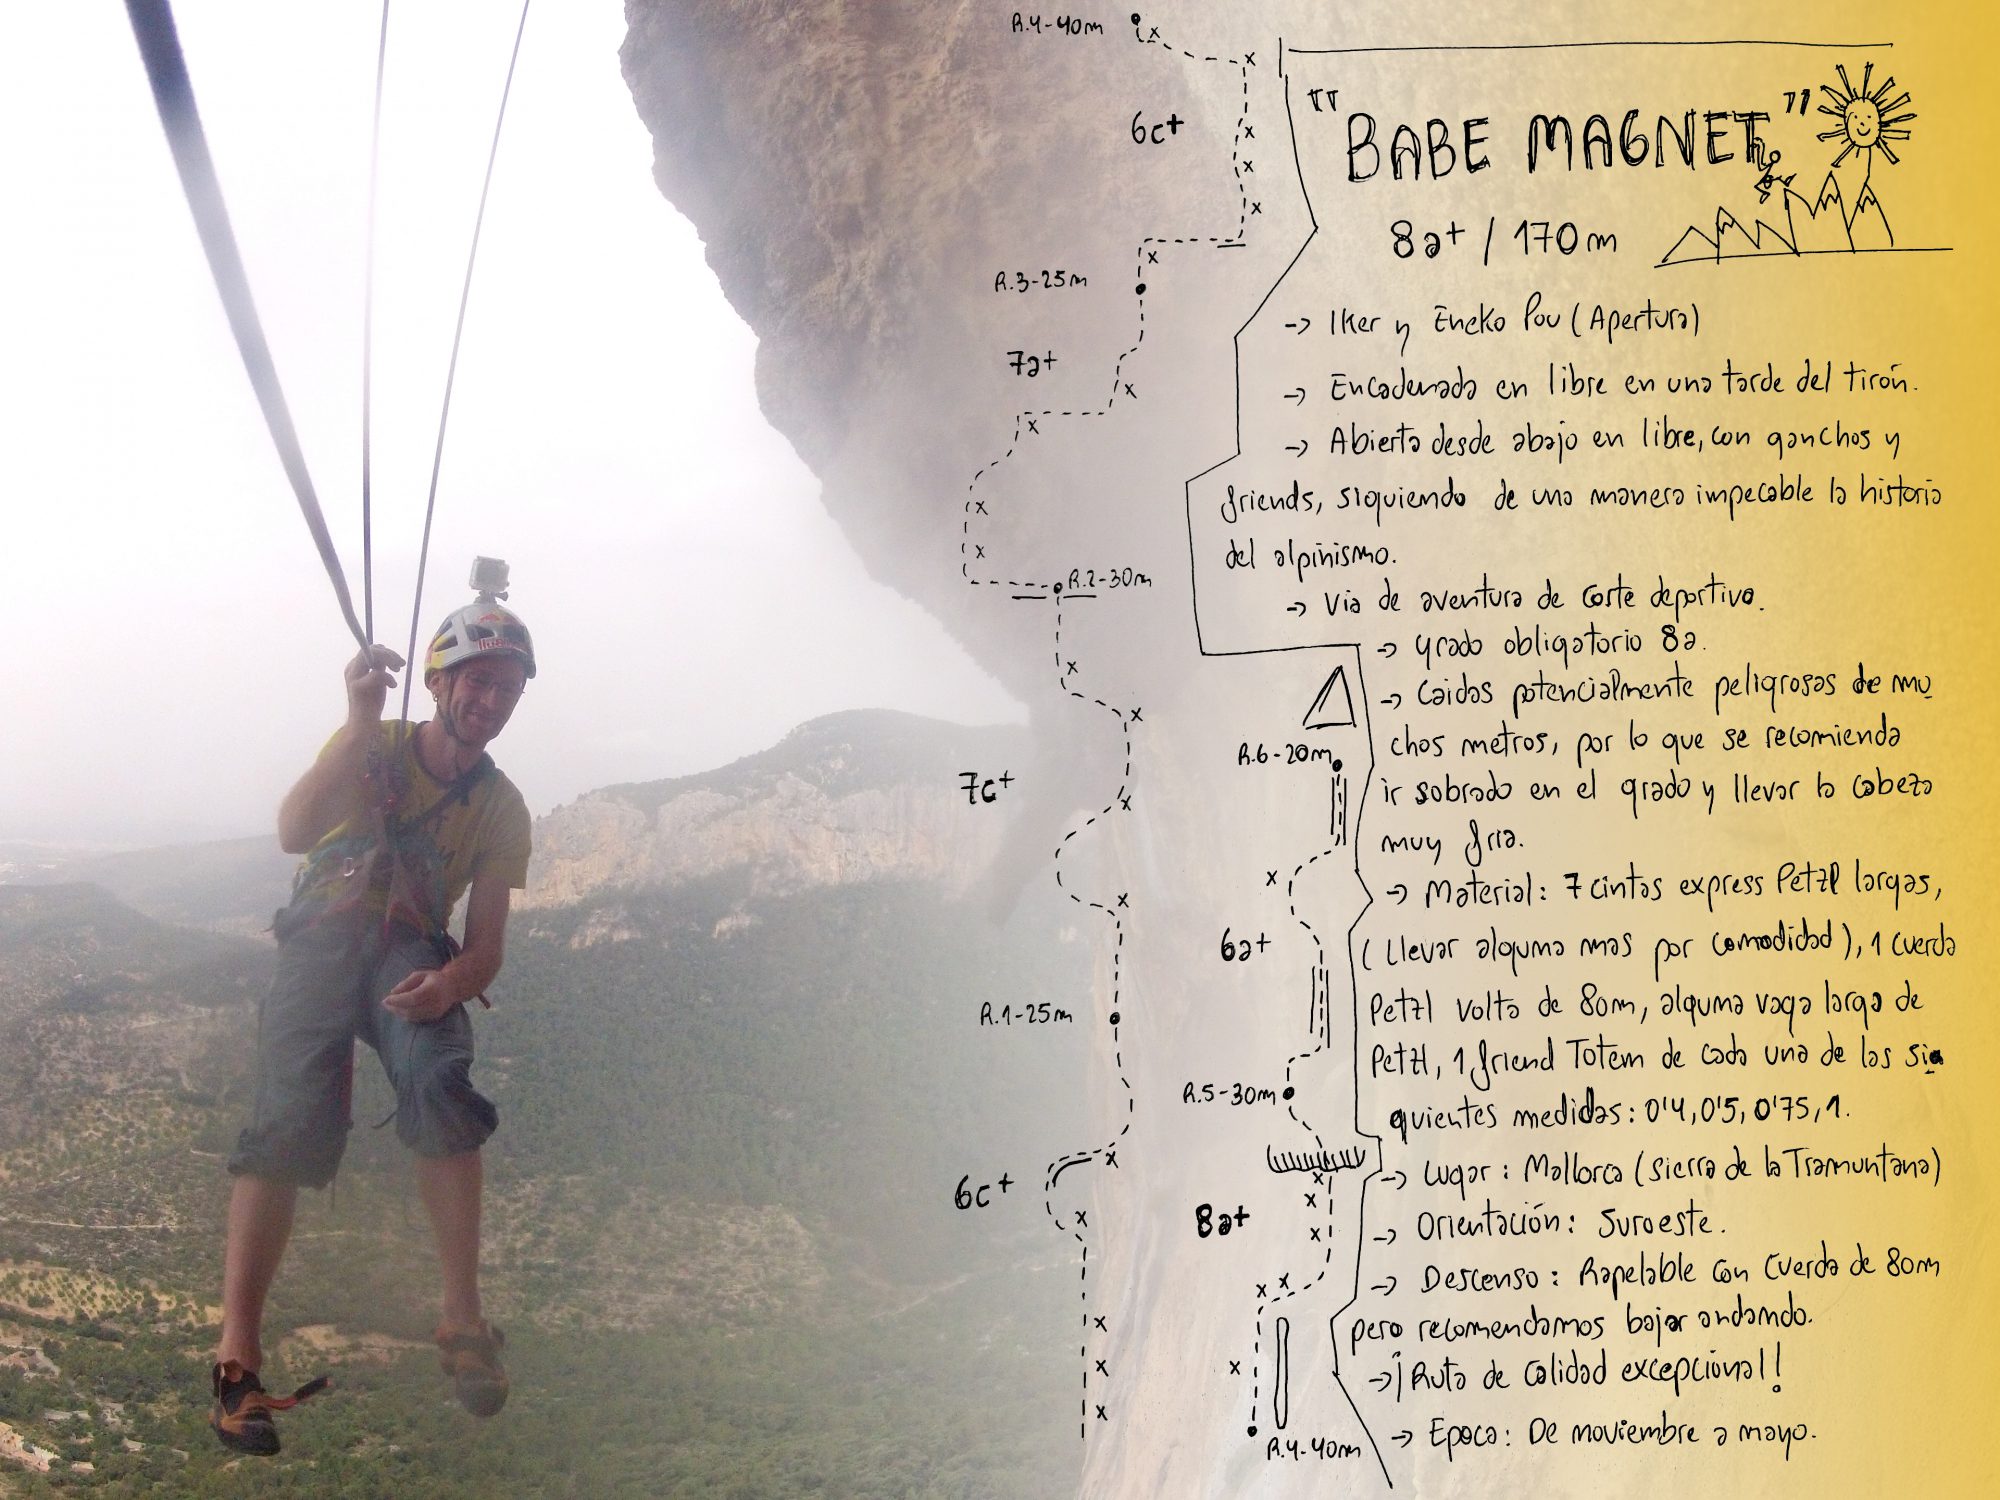 R.4-40m
6c+
R.3-25m
7a+
R.2-30m
7c+
R.1-25m
6c+
"BABE MAGNET"
8a+ / 170m
-> Iker y Eneko Pou (Apertura)
-> Encadenada en libre en una tarde del tirón.
-> Abierta desde abajo en libre, con ganchos y
friends, siguiendo de una manera impecable la historia
del alpinismo.
-> Via de aventura de corte deportivo.
-> Grado obligatorio 8a.
-> Caidas potencialmente peligrosas de mu
chos metros, por lo que se recomienda
ir sobrado en el grado y llevar la cabeza
muy fria.
-> Material: 7 cintas express Petzl largas,
(llevar alguna mas por comodidad), 1 cuerda
Petzl Volta de 80m, alguna vaga larga de
Petzl, 1 friend Totem de cada una de las si
guientes medidas: 0'4, 0'5, 0'75, 1.
-> Lugar: Mallorca (Sierra de la Tramuntana)
-> Orientación: Suroeste.
-> Descenso: Rapelable con cuerda de 80m
pero recomendamos bajar andando.
-> ¡Ruta de calidad excepcional!
-> Epoca: De noviembre a mayo.
R.6-20m
6a+
R.5-30m
8a+
R.4-40m